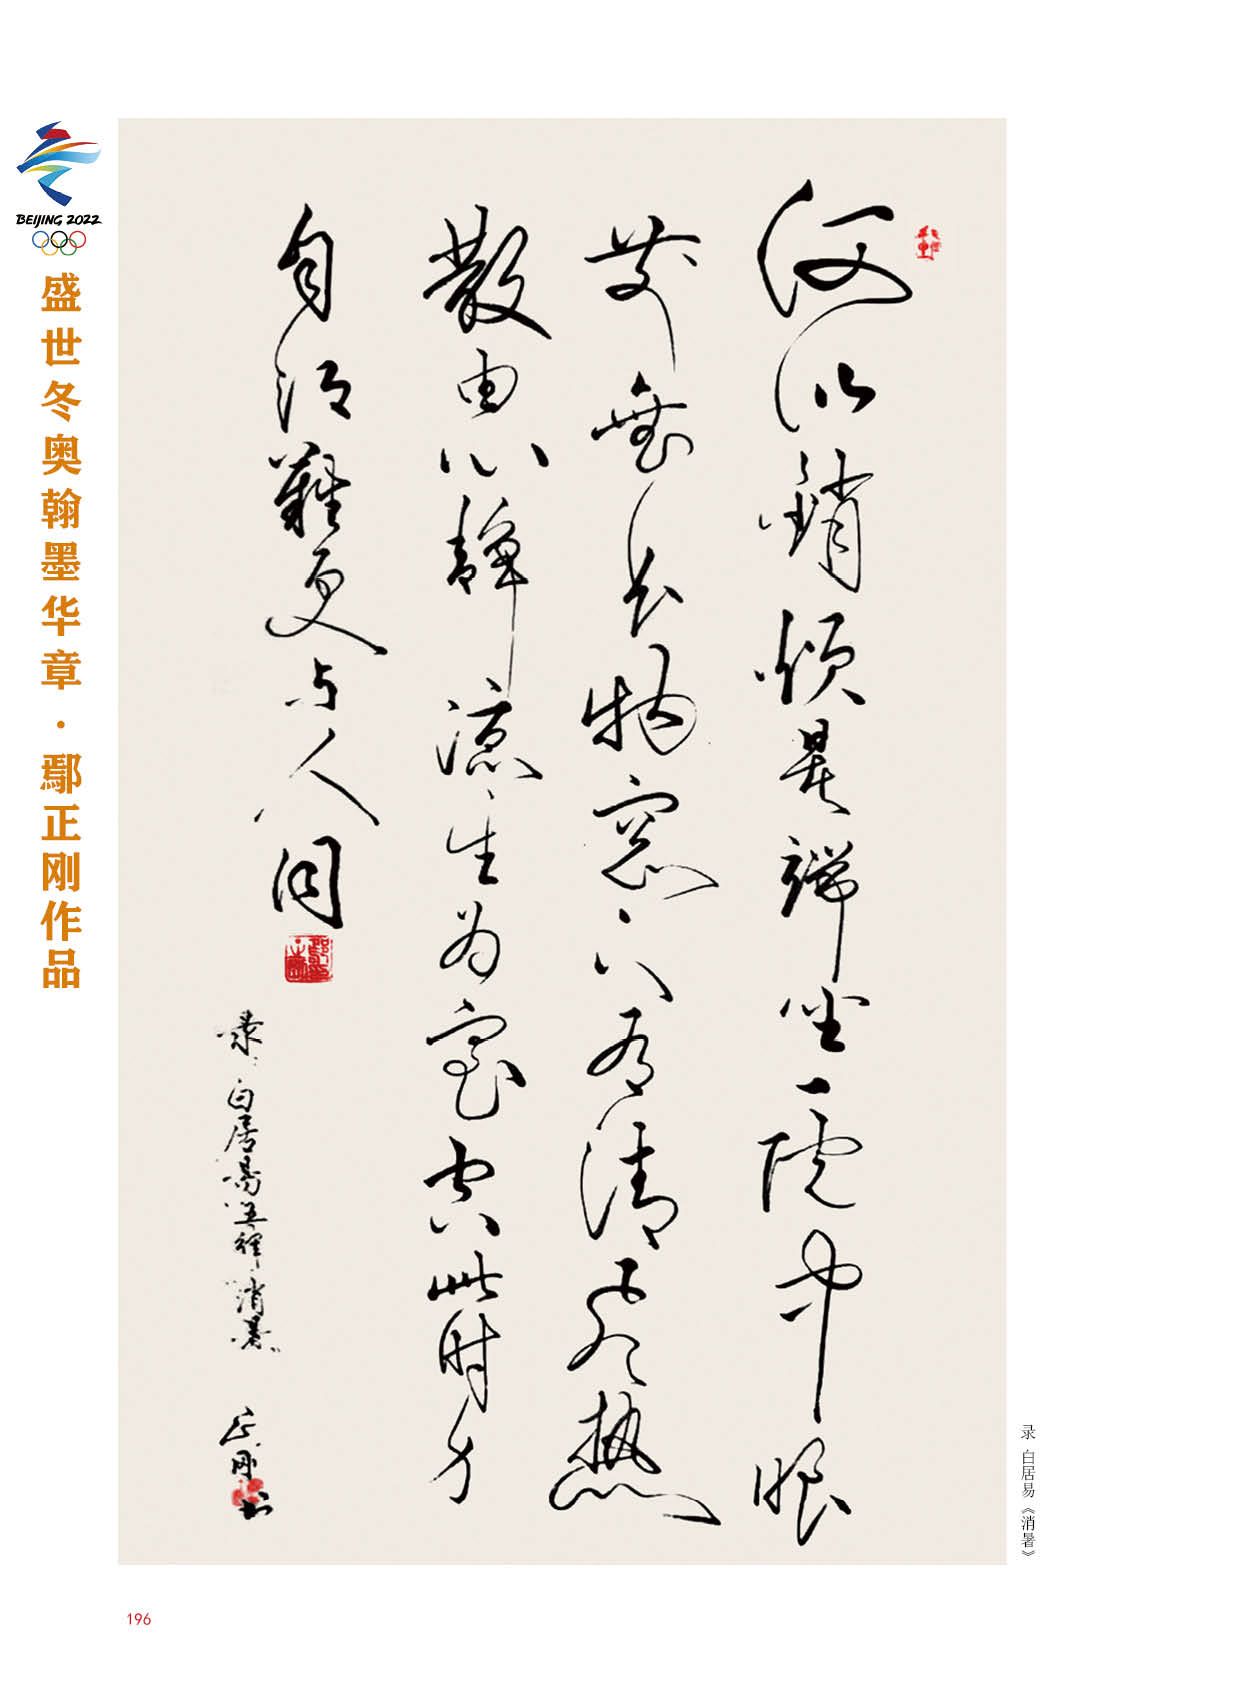 BEIJING 2022
盛世冬奥翰墨华章·鄢正刚作品
何以銷煩暑端坐一院中眼
前無長物窓下有清風熱
散由心靜涼生为室空此时身
自得難更与人同
录白居易五律消暑
正刚书
录 白居易《消暑》
196